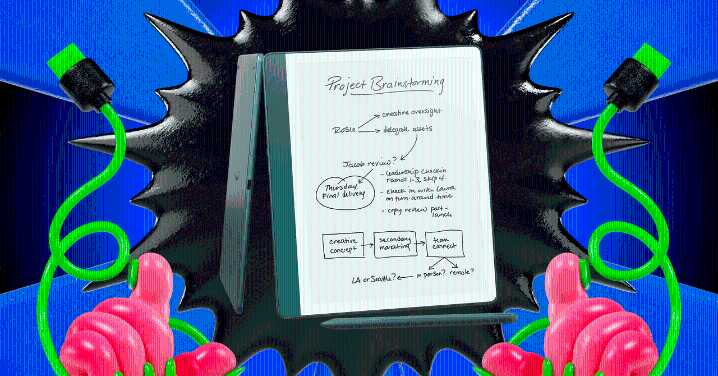 Project Brainstorming
creative oversight
Rosie
delegate assets
Jacob review?
- leadership check in
rounds 1-3, skip 4
Thursday
Final delivery
- check in with Laura
on turn-around-time
- copy review post-
launch
creative
concept
secondary
marketing
team
connect
LA or Seattle?
in person?
remote?